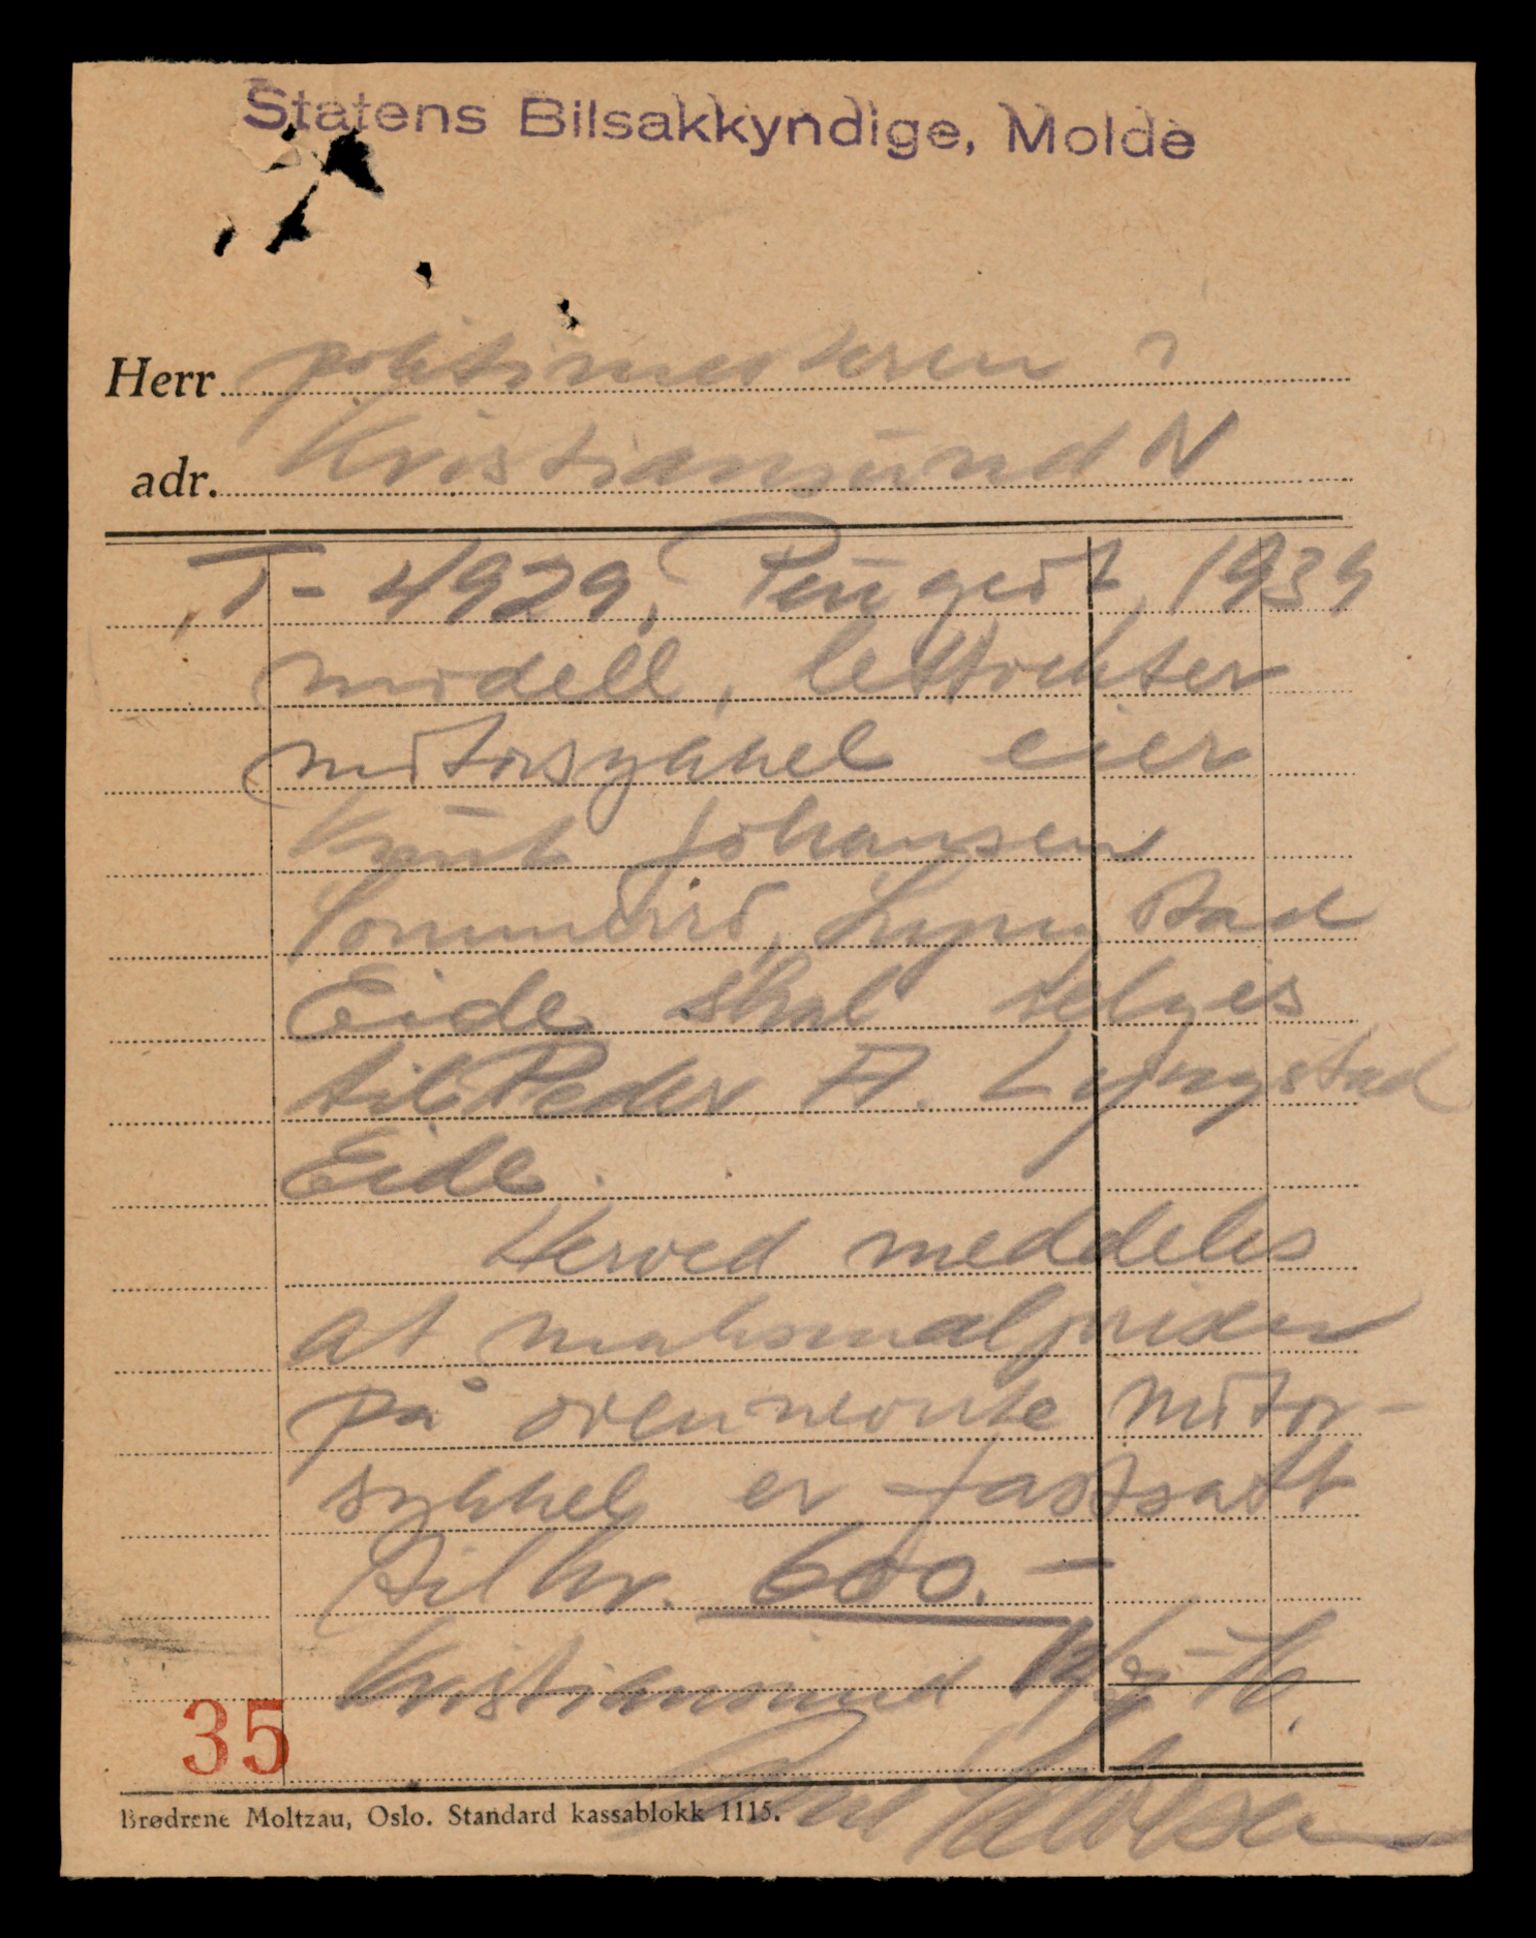 Statens Bilsakkyndige, Molde
Herr politimesteren i
adr. Kristiansund N
T-4929, Peugeot, 1939
modell, lettvekter
motorsykkel eier
Knut Johansen
Lyngstad
Eide skal selges
til Peder A. Lyngstad
Eide.
Herved meddeles
at maksimalprisen
på ovennevnte motor-
sykkel er fastsatt
til kr. 600.-
Kristiansund
35
Brødrene Moltzau, Oslo. Standard kassablokk 1115.